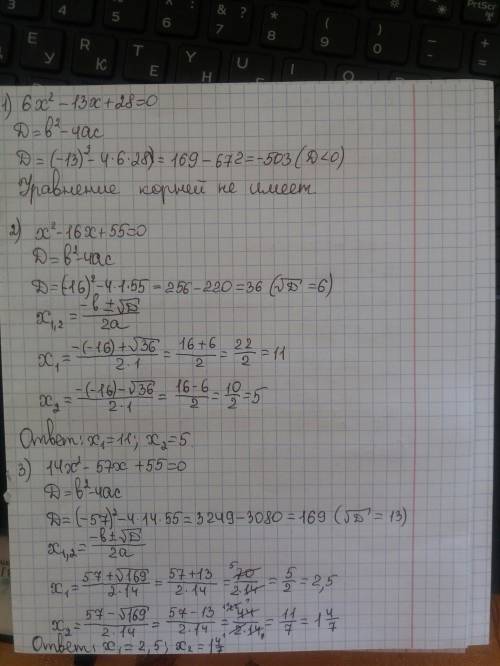 1) 6x² - 13x + 28 = 0
Д = в² - 4ас
Д = (-13)² - 4·6·28) = 169 - 672 = -503 (Д<0)
Уравнение корней не имеет
2) x² - 16x + 55 = 0
Д = в² - 4ас
Д = (-16)² - 4·1·55 = 256 - 220 = 36 (√Д = 6)
x₁,₂ = (-в ± √Д)/2а
x₁ = (-(-16) + √36)/(2·1) = (16 + 6)/2 = 22/2 = 11
x₂ = (-(-16) - √36)/(2·1) = (16 - 6)/2 = 10/2 = 5
Ответ: x₁ = 11; x₂ = 5
3) 14x² - 57x + 55 = 0
Д = в² - 4ас
Д = (-57)² - 4·14·55 = 3249 - 3080 = 169 (√Д = 13)
x₁,₂ = (-в ± √Д)/2а
x₁ = (57 + √169)/(2·14) = (57 + 13)/(2·14) = 70/(2·14) = 5/2 = 2,5
x₂ = (57 - √169)/(2·14) = (57 - 13)/(2·14) = 44/(2·14) = 11/7 = 1 4/7
Ответ: x₁ = 2,5; x₂ = 1 4/7